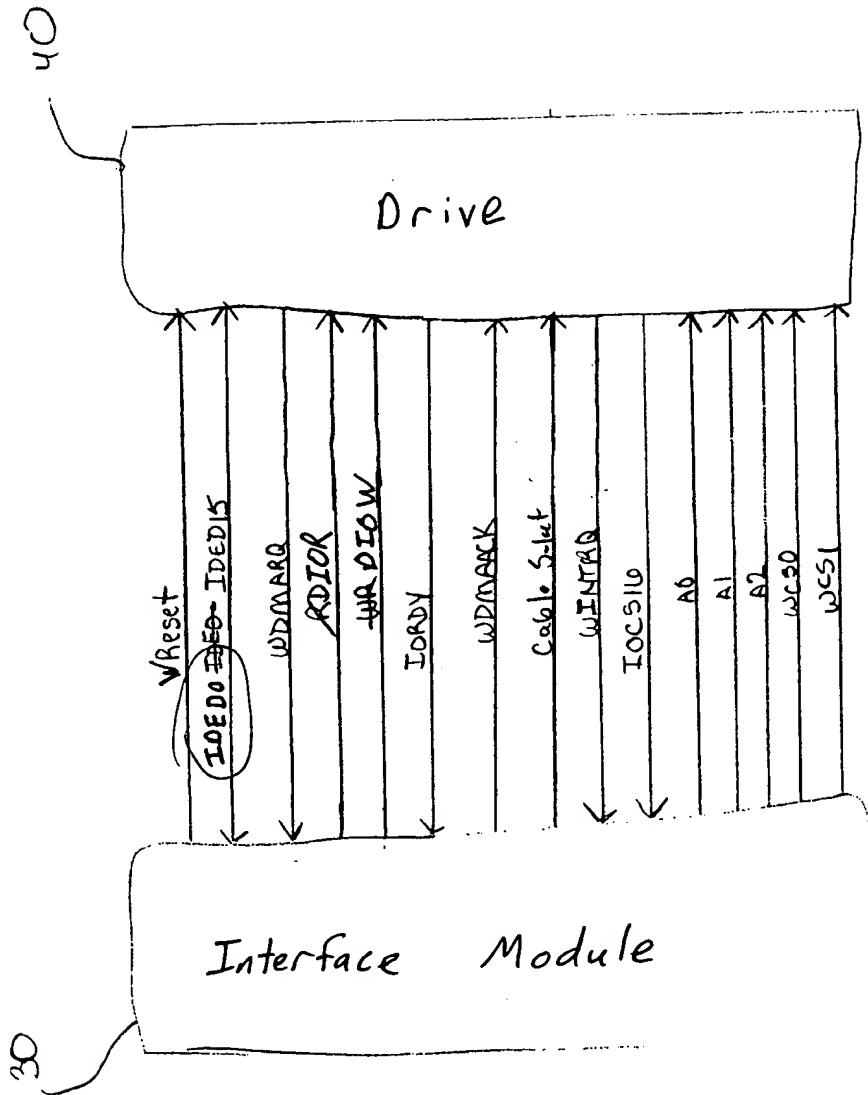 40
Drive
WReset
IDED0 IDE0- IDED15
WDMARQ
RDIOR
WRDIOW
IORDY
WDMAACK
Cable Select
WINTRQ
IOCS16
A0
A1
A2
WCS0
WCS1
Interface Module
30